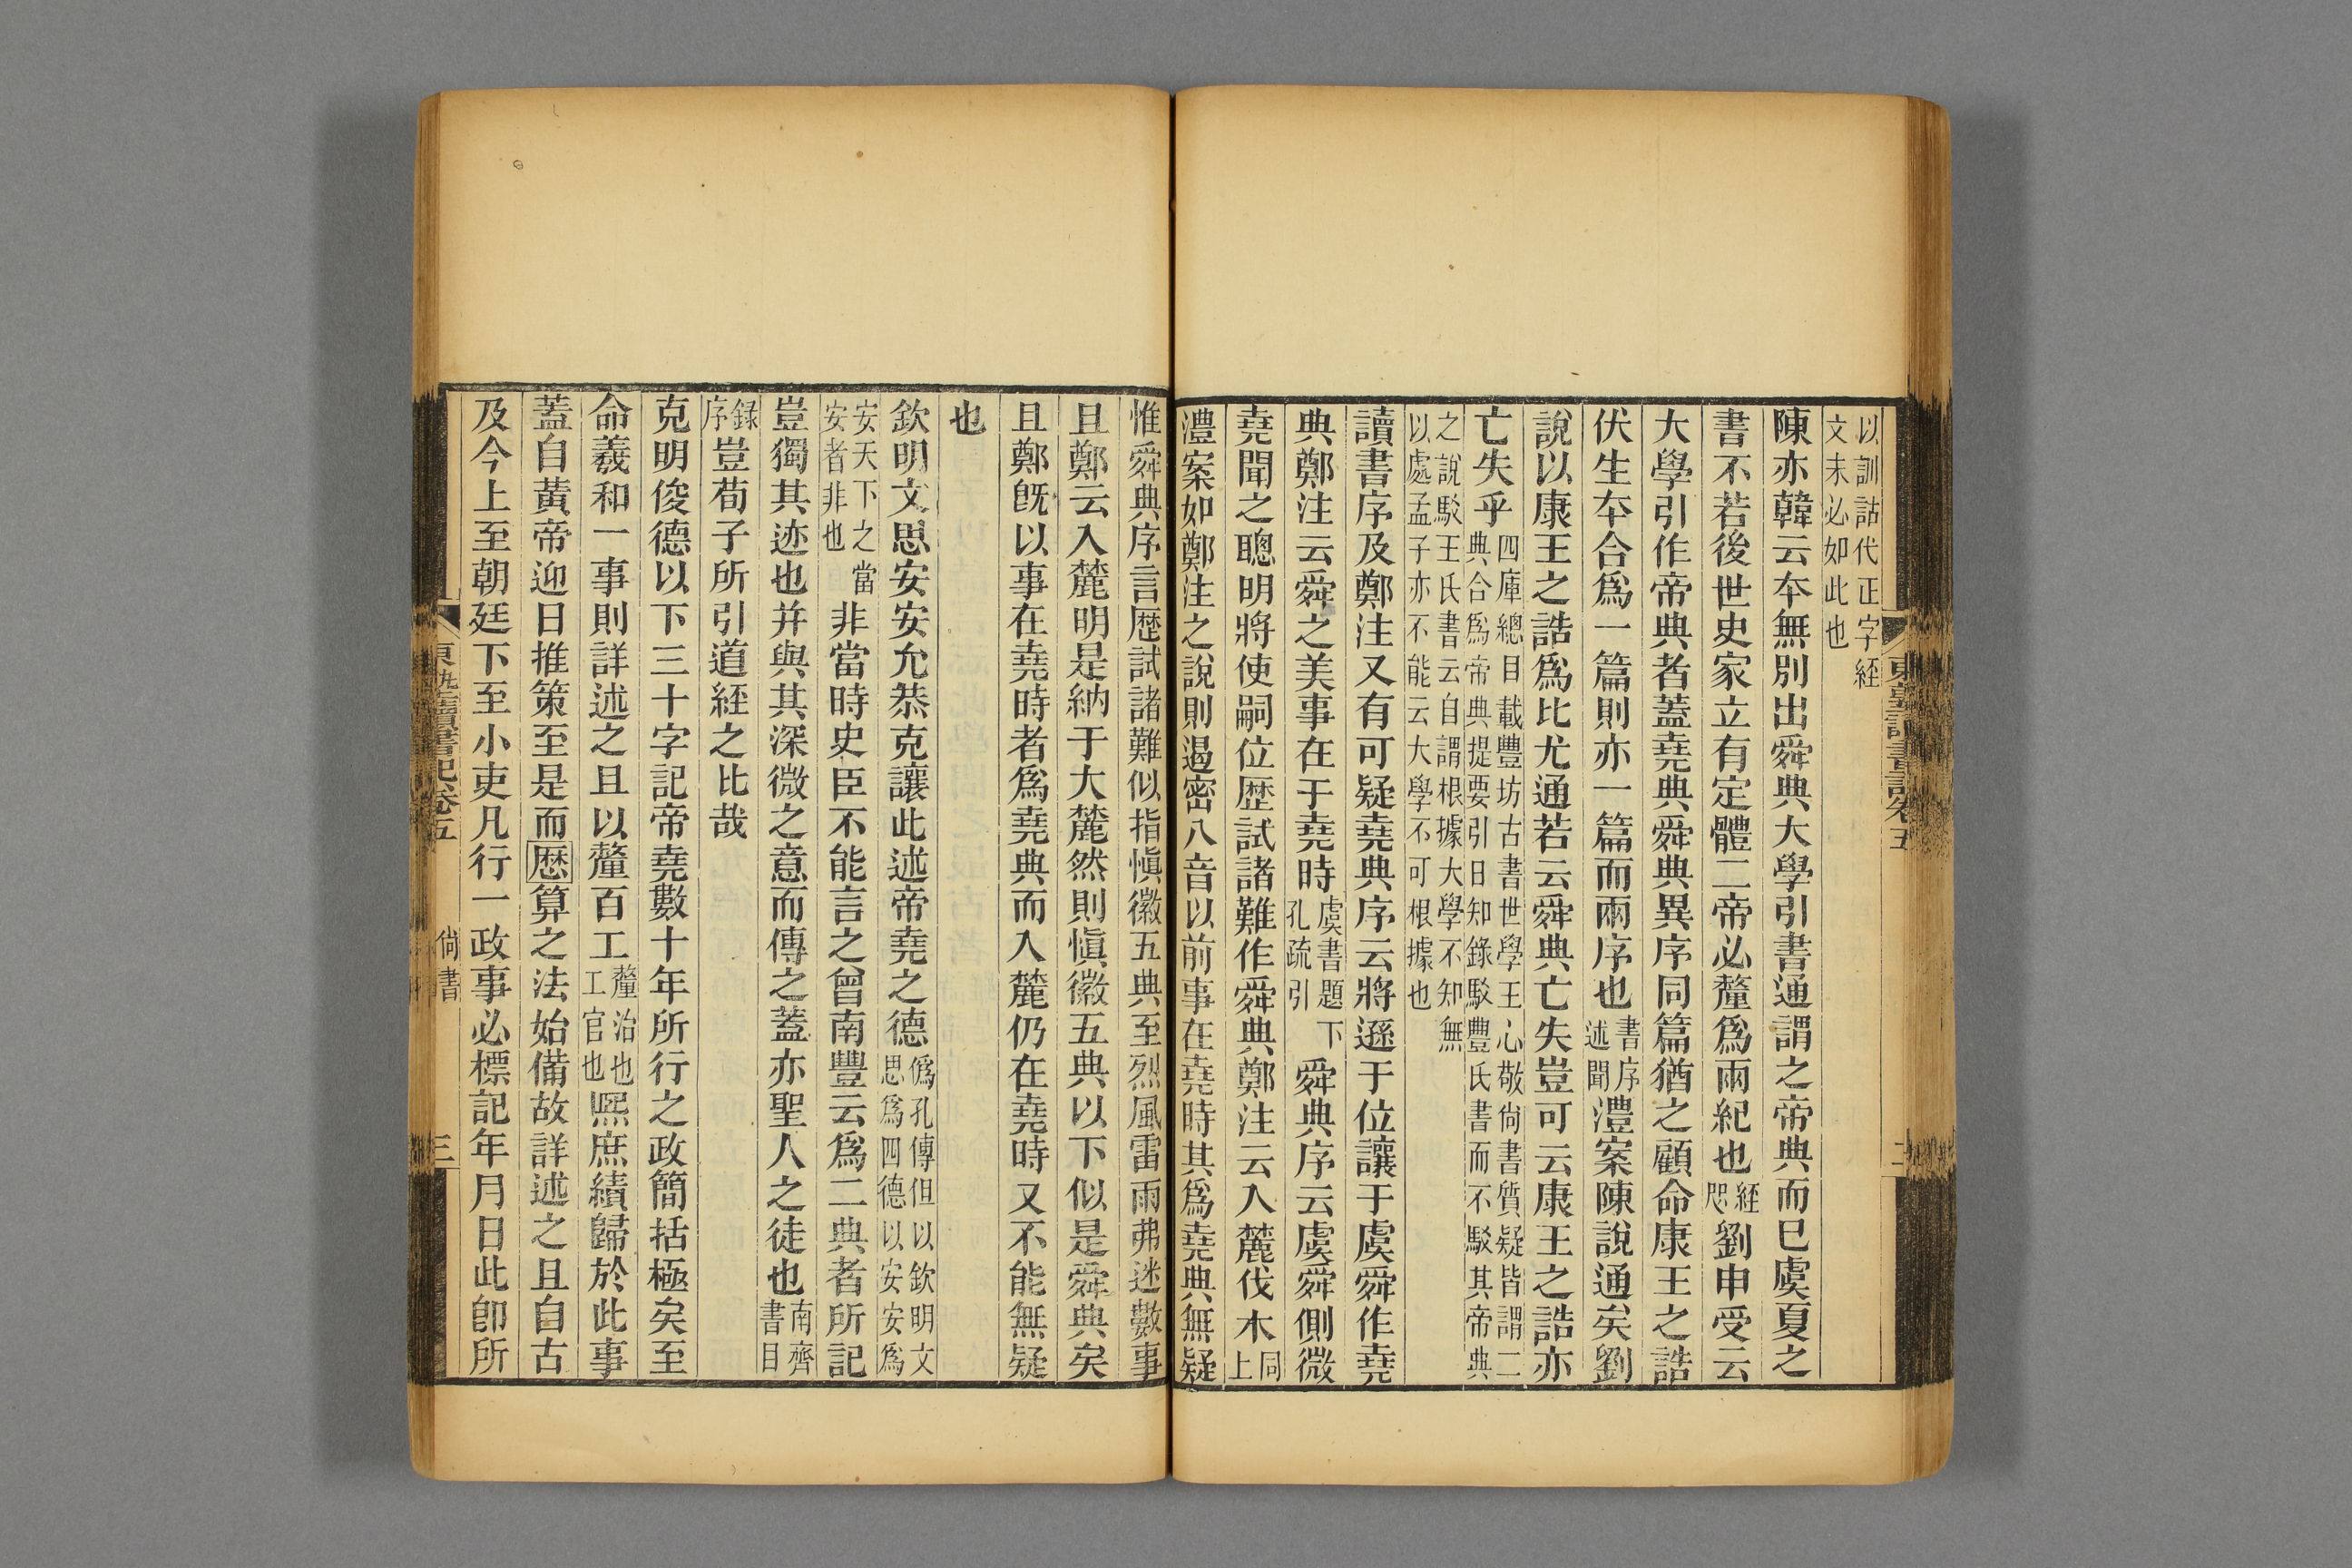 以訓詁代正字經
文未必如此也
陳亦韓云本無別出舜典大學引書通謂之帝典而已虞夏之
書不若後世史家立有定體二帝必釐爲兩紀也經咫劉申受云
大學引作帝典者蓋堯典舜典異序同篇猶之顧命康王之誥
伏生本合爲一篇則亦一篇而兩序也書序述聞澧案陳說通矣劉
說以康王之誥爲比尤通若云舜典亡失豈可云康王之誥亦
亡失乎四庫總目載豐坊古書世學王心敬尙書質疑皆謂二典合爲帝典提要引日知錄駁豐氏書而不駁其帝典
之說駁王氏書云自謂根據大學不知無以處孟子亦不能云大學不可根據也
讀書序及鄭注又有可疑堯典序云將遜于位讓于虞舜作堯
典鄭注云舜之美事在于堯時虞書題下孔疏引舜典序云虞舜側微
堯聞之聰明將使嗣位歴試諸難作舜典鄭注云入麓伐木同上
澧案如鄭注之說則遏密八音以前事在堯時其爲堯典無疑
惟舜典序言歴試諸難似指愼徽五典至烈風雷雨弗迷數事
且鄭云入麓明是納于大麓然則愼徽五典以下似是舜典矣
且鄭旣以事在堯時者爲堯典而入麓仍在堯時又不能無疑
也
欽明文思安安允恭克讓此述帝堯之德僞孔傳但以欽明文思爲四德以安安爲
安天下之當安者非也非當時史臣不能言之曾南豐云爲二典者所記
豈獨其迹也并與其深微之意而傳之蓋亦聖人之徒也南齊書目
錄序豈荀子所引道經之比哉
克明俊德以下三十字記帝堯數十年所行之政簡括極矣至
命羲和一事則詳述之且以釐百工釐治也工官也熙庶績歸於此事
蓋自黃帝迎日推策至是而厯算之法始備故詳述之且自古
及今上至朝廷下至小吏凡行一政事必標記年月日此卽所
東塾讀書記卷五
尙書
三